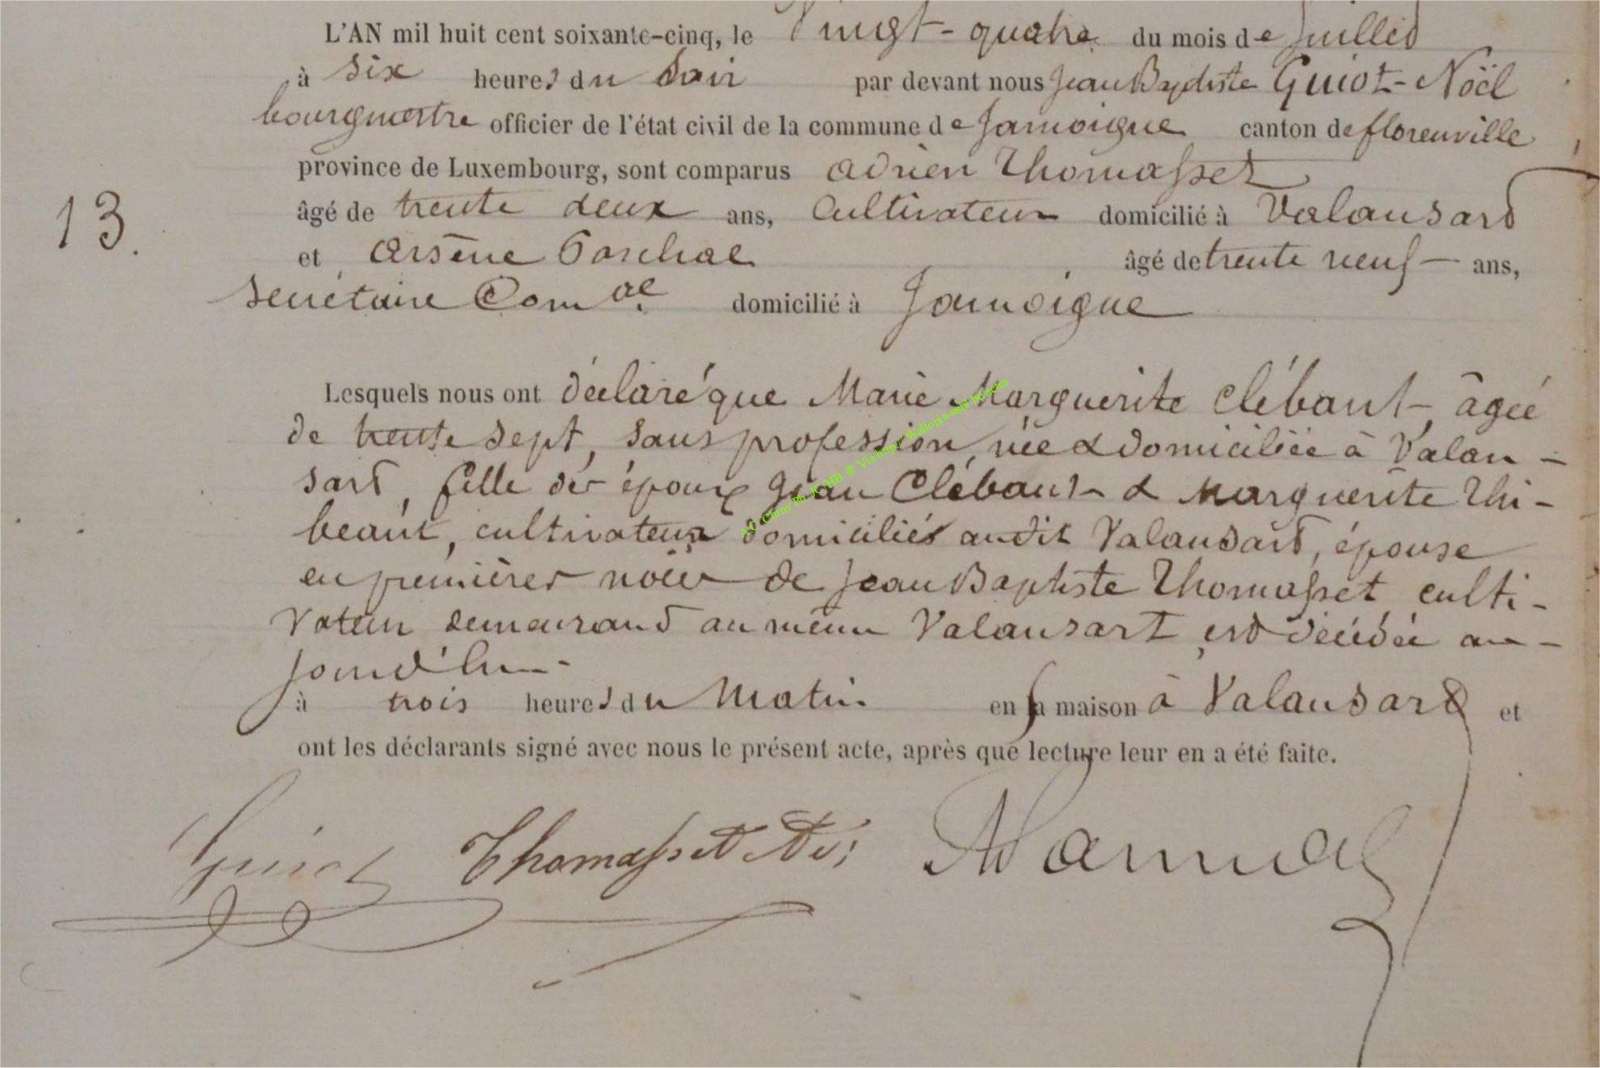 L'AN mil huit cent soixante-cinq, le Vingt-quatre du mois de Juillet
à six heures du soir par devant nous Jean Baptiste Guiot-Noël
bourgmestre officier de l'état civil de la commune de Jamoigne canton de florenville
province de Luxembourg, sont comparus Adrien Thomasset
13. âgé de trente deux ans, Cultivateur domicilié à Valansart
et Arsène Paschal âgé de trente neuf ans,
Secrétaire Com.al domicilié à Jamoigne
Lesquels nous ont déclaré que Marie Marguerite Clébant, âgée
de trente sept, sans profession, née & domiciliée à Valan-
sart, fille des époux Jean Clébant & Marguerite Thi-
beaut, cultivateurs domiciliés audit Valansart, épouse
en premières noces de Jean Baptiste Thomasset culti-
vateur demeurant au même Valansart, est décédée au-
jourd'hui
à trois heures du Matin en sa maison à Valansart et
ont les déclarants signé avec nous le présent acte, après que lecture leur en a été faite.
Guiot Thomasset